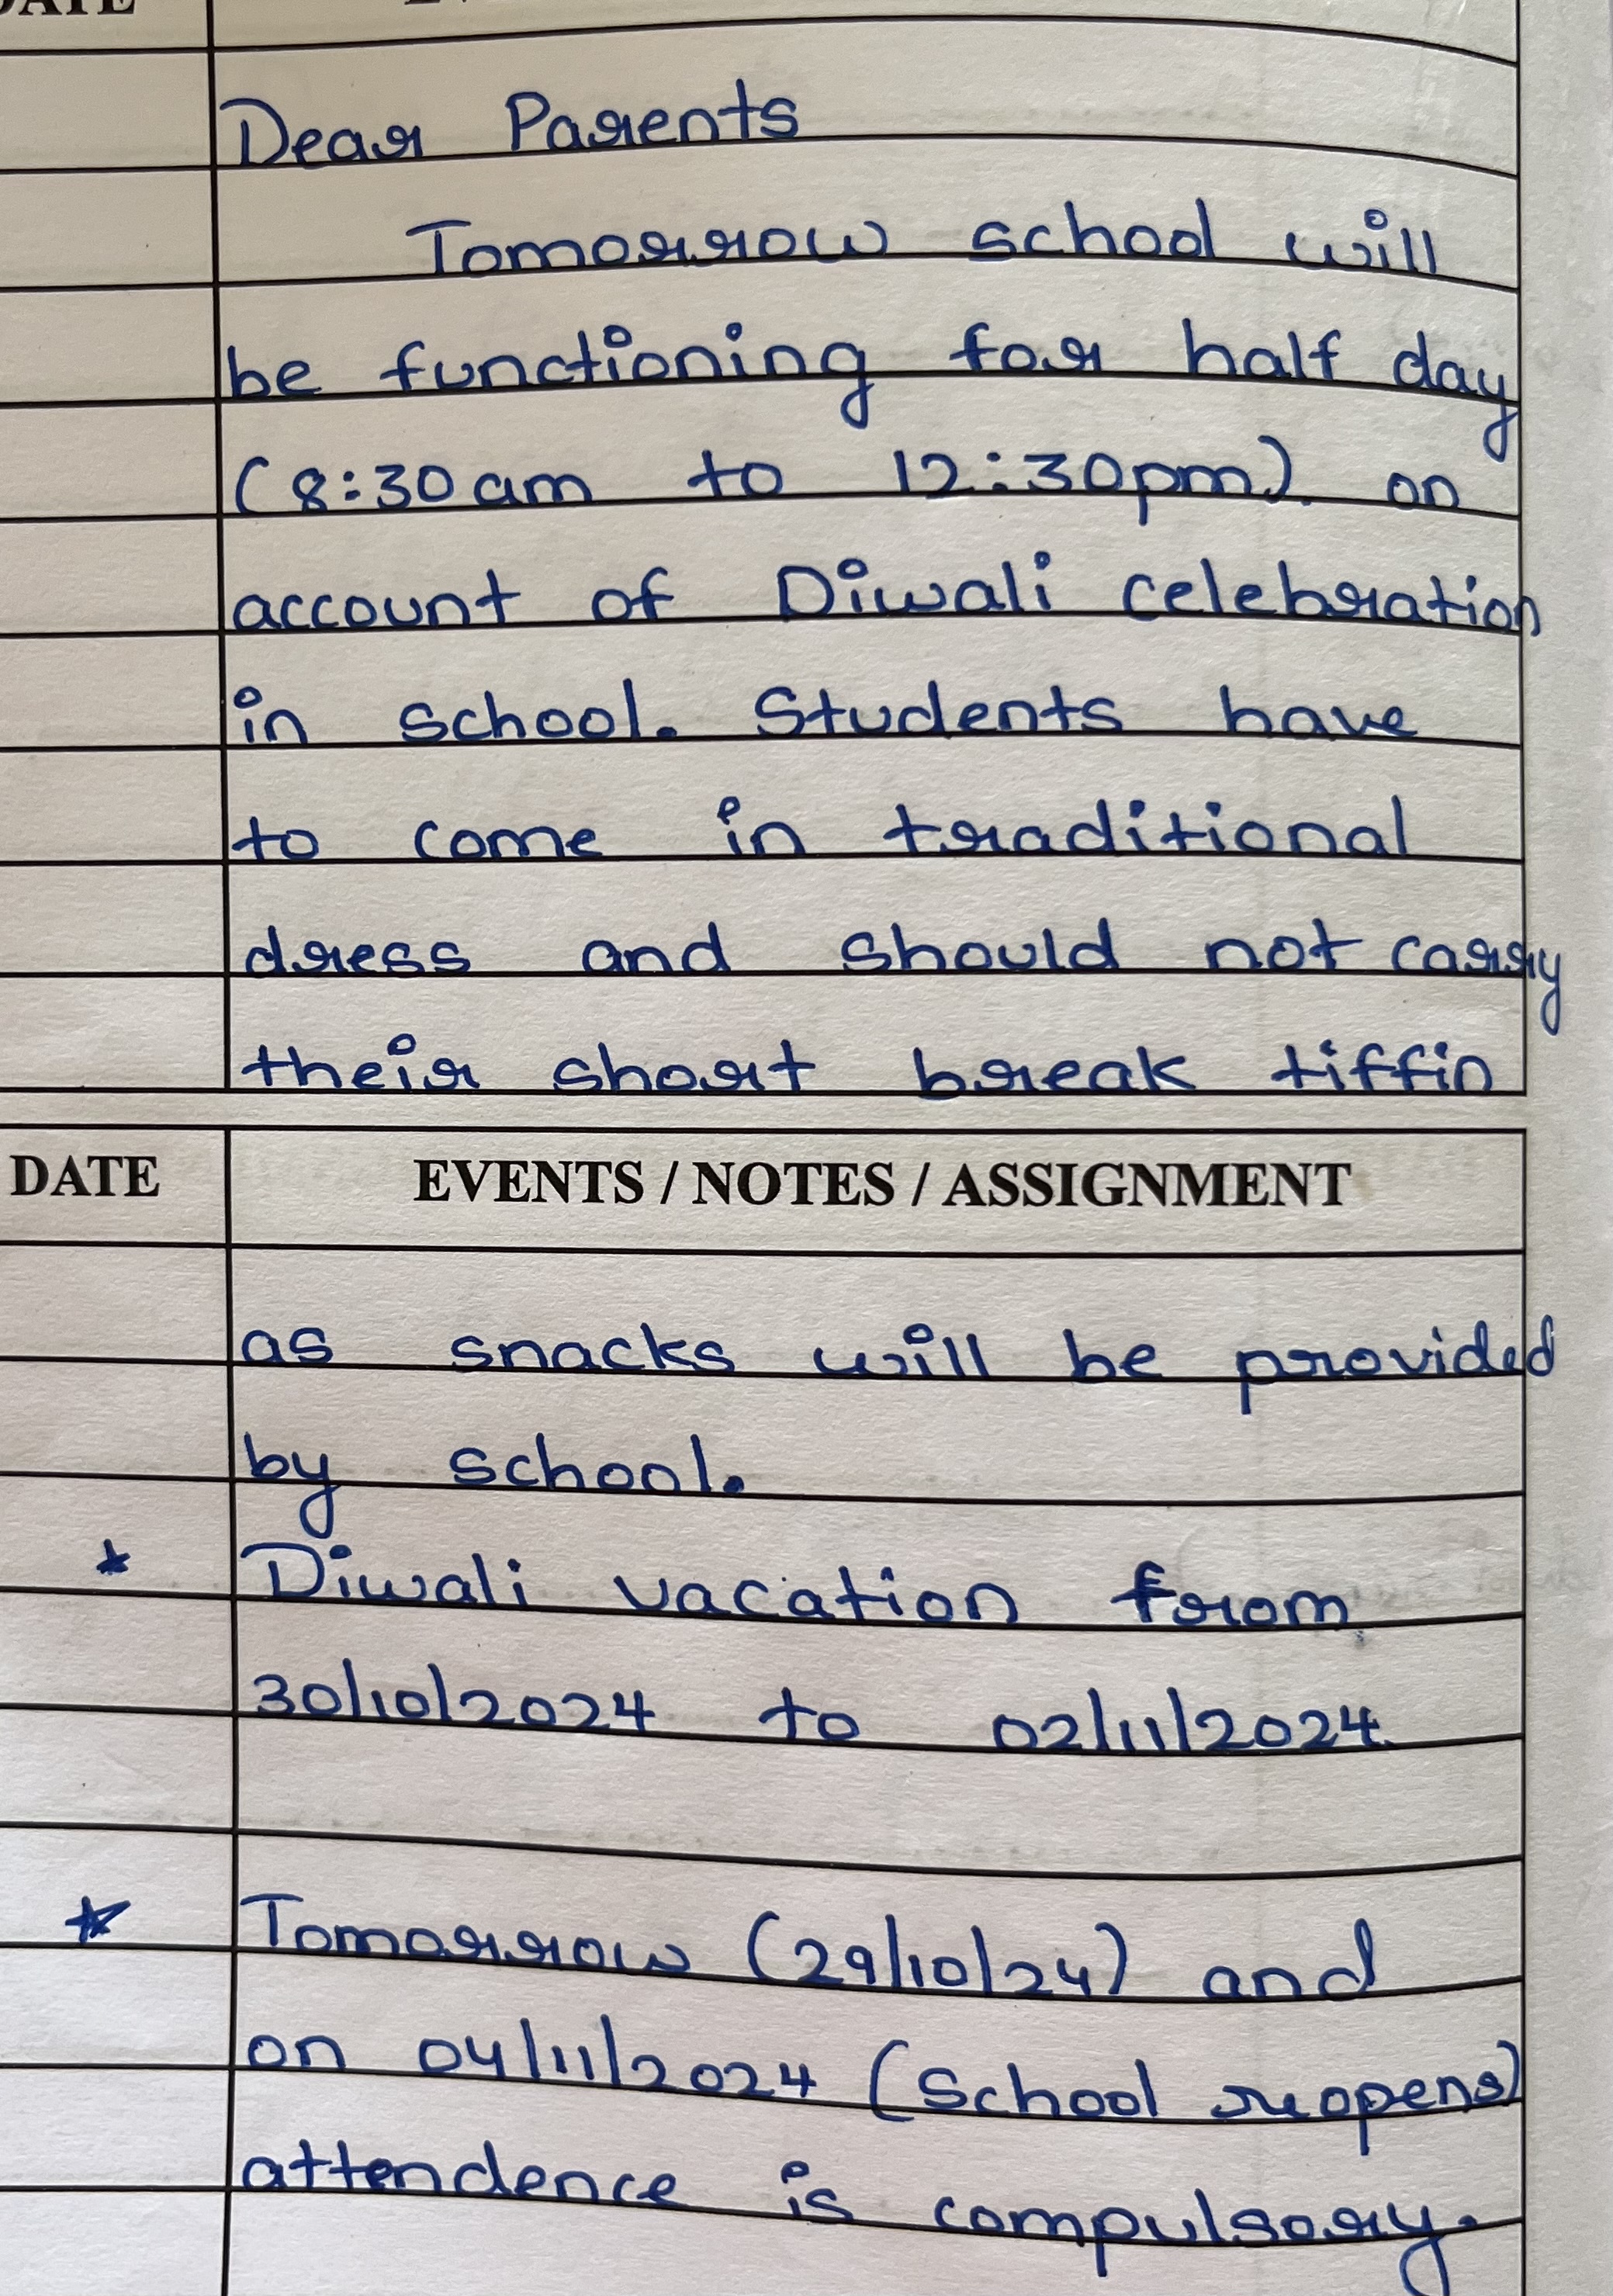 DATE
Dear Parents
Tomorrow school will
be functioning for half day
(8:30am to 12:30pm) on
account of Diwali celebration
in school. Students have
to come in traditional
dress and should not carry
their short break tiffin
DATE EVENTS / NOTES / ASSIGNMENT
as snacks will be provided
by school.
* Diwali vacation from
30/10/2024 to 02/11/2024
* Tomorrow (29/10/24) and
on 04/11/2024 (School reopens)
attendence is compulsory.